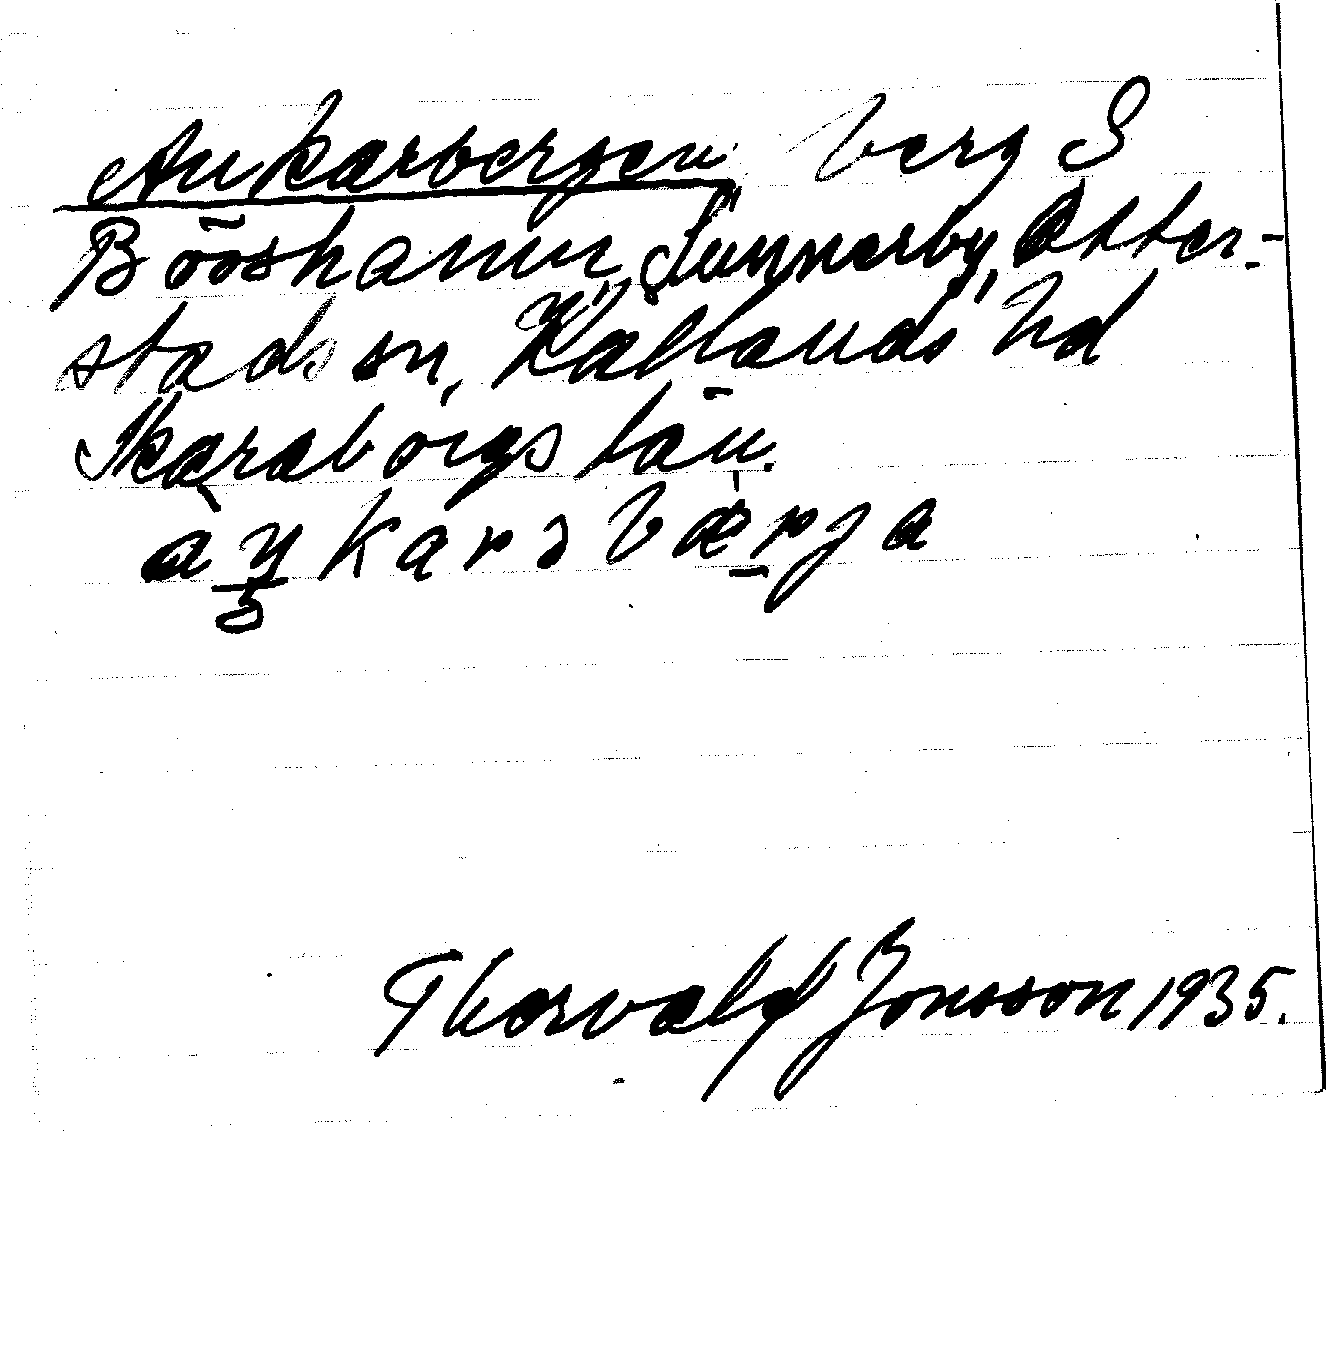 Ankarbergen, berg S
Bööshamn, Sunnerby, Otter-
stads sn, Kållands hd
Skaraborgs län.
aŋkarsbærja
Thorvald Jonsson 1935.